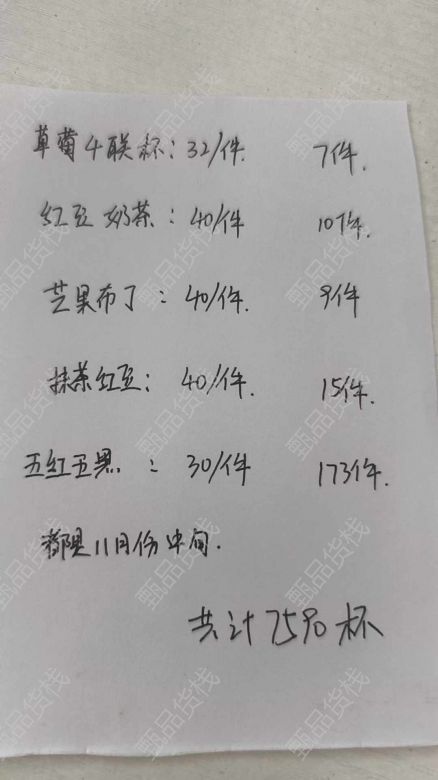 草莓4联杯：32/件. 7件.
红豆奶茶：40/件 10件.
芒果布丁：40/件. 9件
抹茶红豆：40/件. 15件.
五红五黑：30/件 173件.
都是11月份中旬.
共计7590杯
甄品货栈